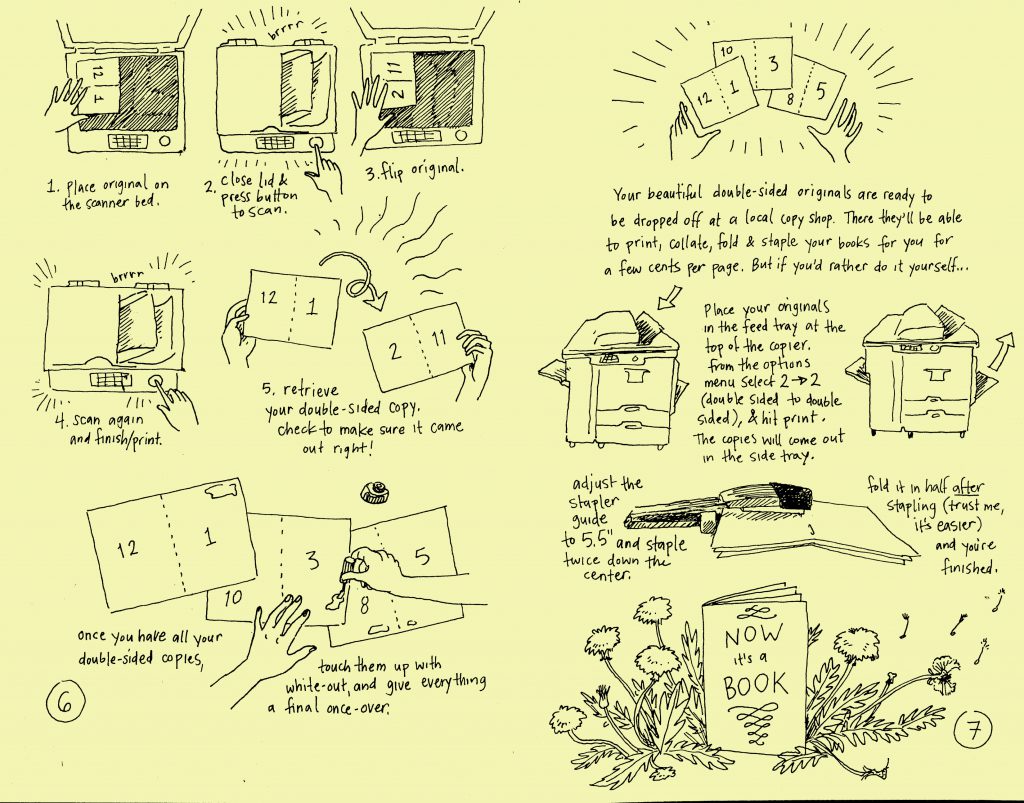 12 1
1. place original on
the scanner bed.
brrrr
2. close lid &
press button
to scan.
2 11
3. flip original.
brrrr
4. scan again
and finish/print.
12 1
2 11
5. retrieve
your double-sided copy.
check to make sure it came
out right!
12 1
10 3
8 5
once you have all your
double-sided copies,
touch them up with
white-out, and give everything
a final once-over.
6
12 1
10 3
8 5
Your beautiful double-sided originals are ready to
be dropped off at a local copy shop. There they'll be able
to print, collate, fold & staple your books for you for
a few cents per page. But if you'd rather do it yourself...
Place your originals
in the feed tray at the
top of the copier.
From the options
menu select 2→2
(double sided to double
sided), & hit print.
The copies will come out
in the side tray.
adjust the
stapler
guide
to 5.5" and staple
twice down the
center.
fold it in half after
stapling (trust me,
it's easier)
and you're
finished.
NOW
it's a
BOOK
7